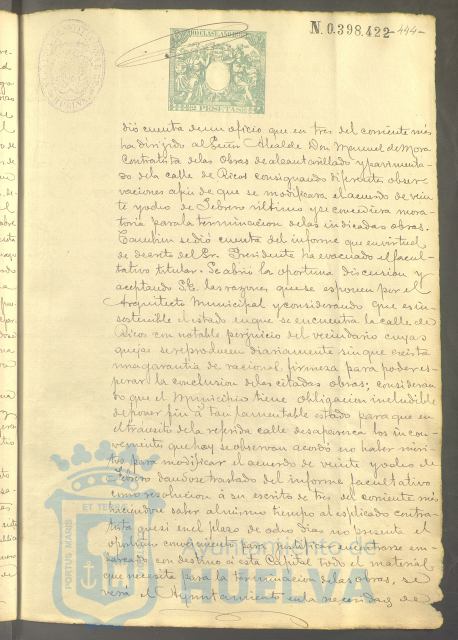 N.0.398.422 -444-
dió cuenta de un oficio que en tres del corriente mes
ha dirijido al Señor Alcalde Don Manuel de Mora
Contratista de las Obras de alcantarillado y pavimenta-
do de la calle de Ricos consignando diferente obser-
vaciones a fin de que se modificara el acuerdo de vein-
te y ocho de Febrero último y se concediera mora-
toria para la terminacion de las indicadas obras.
Tambien se dió cuenta del informe que en virtud
de decreto del Sr. Presidente ha evacuado el facul-
tativo titular. Se abrió la oportuna discusion y
aceptando S.E. las razones que se esponen por el
Arquitecto Municipal y considerando que es in-
sostenible el estado en que se encuentra la calle de
Ricos con notable perjuicio del vecindario cuyas
quejas se reproducen diariamente sin que exista
una garantia de racional firmeza para poder es-
perar la conclusion de las citadas obras; consideran-
do que el Municipio tiene obligacion ineludible
de poner fin á tan lamentable estado para que en
el tránsito de la referida calle desaparezca los incon-
venientes que hoy se observan acordó no haber meri-
tos para modificar el acuerdo de veinte y ocho de
Febrero dandose traslado del informe facultativo
como resolucion á su escrito de tres del corriente mes
haciendole saber al mismo tiempo al esplicado contra-
tista que si en el plazo de ocho dias no presenta el
oportuno conocimiento para justificar encontrarse em-
barcado con destino á esta Capital todo el material
que necesita para la terminacion de las obras, se
verá el Ayuntamiento en la necesidad de
PORTUS MARIS
ET TERRAE
Ayuntamiento de
HUELVA